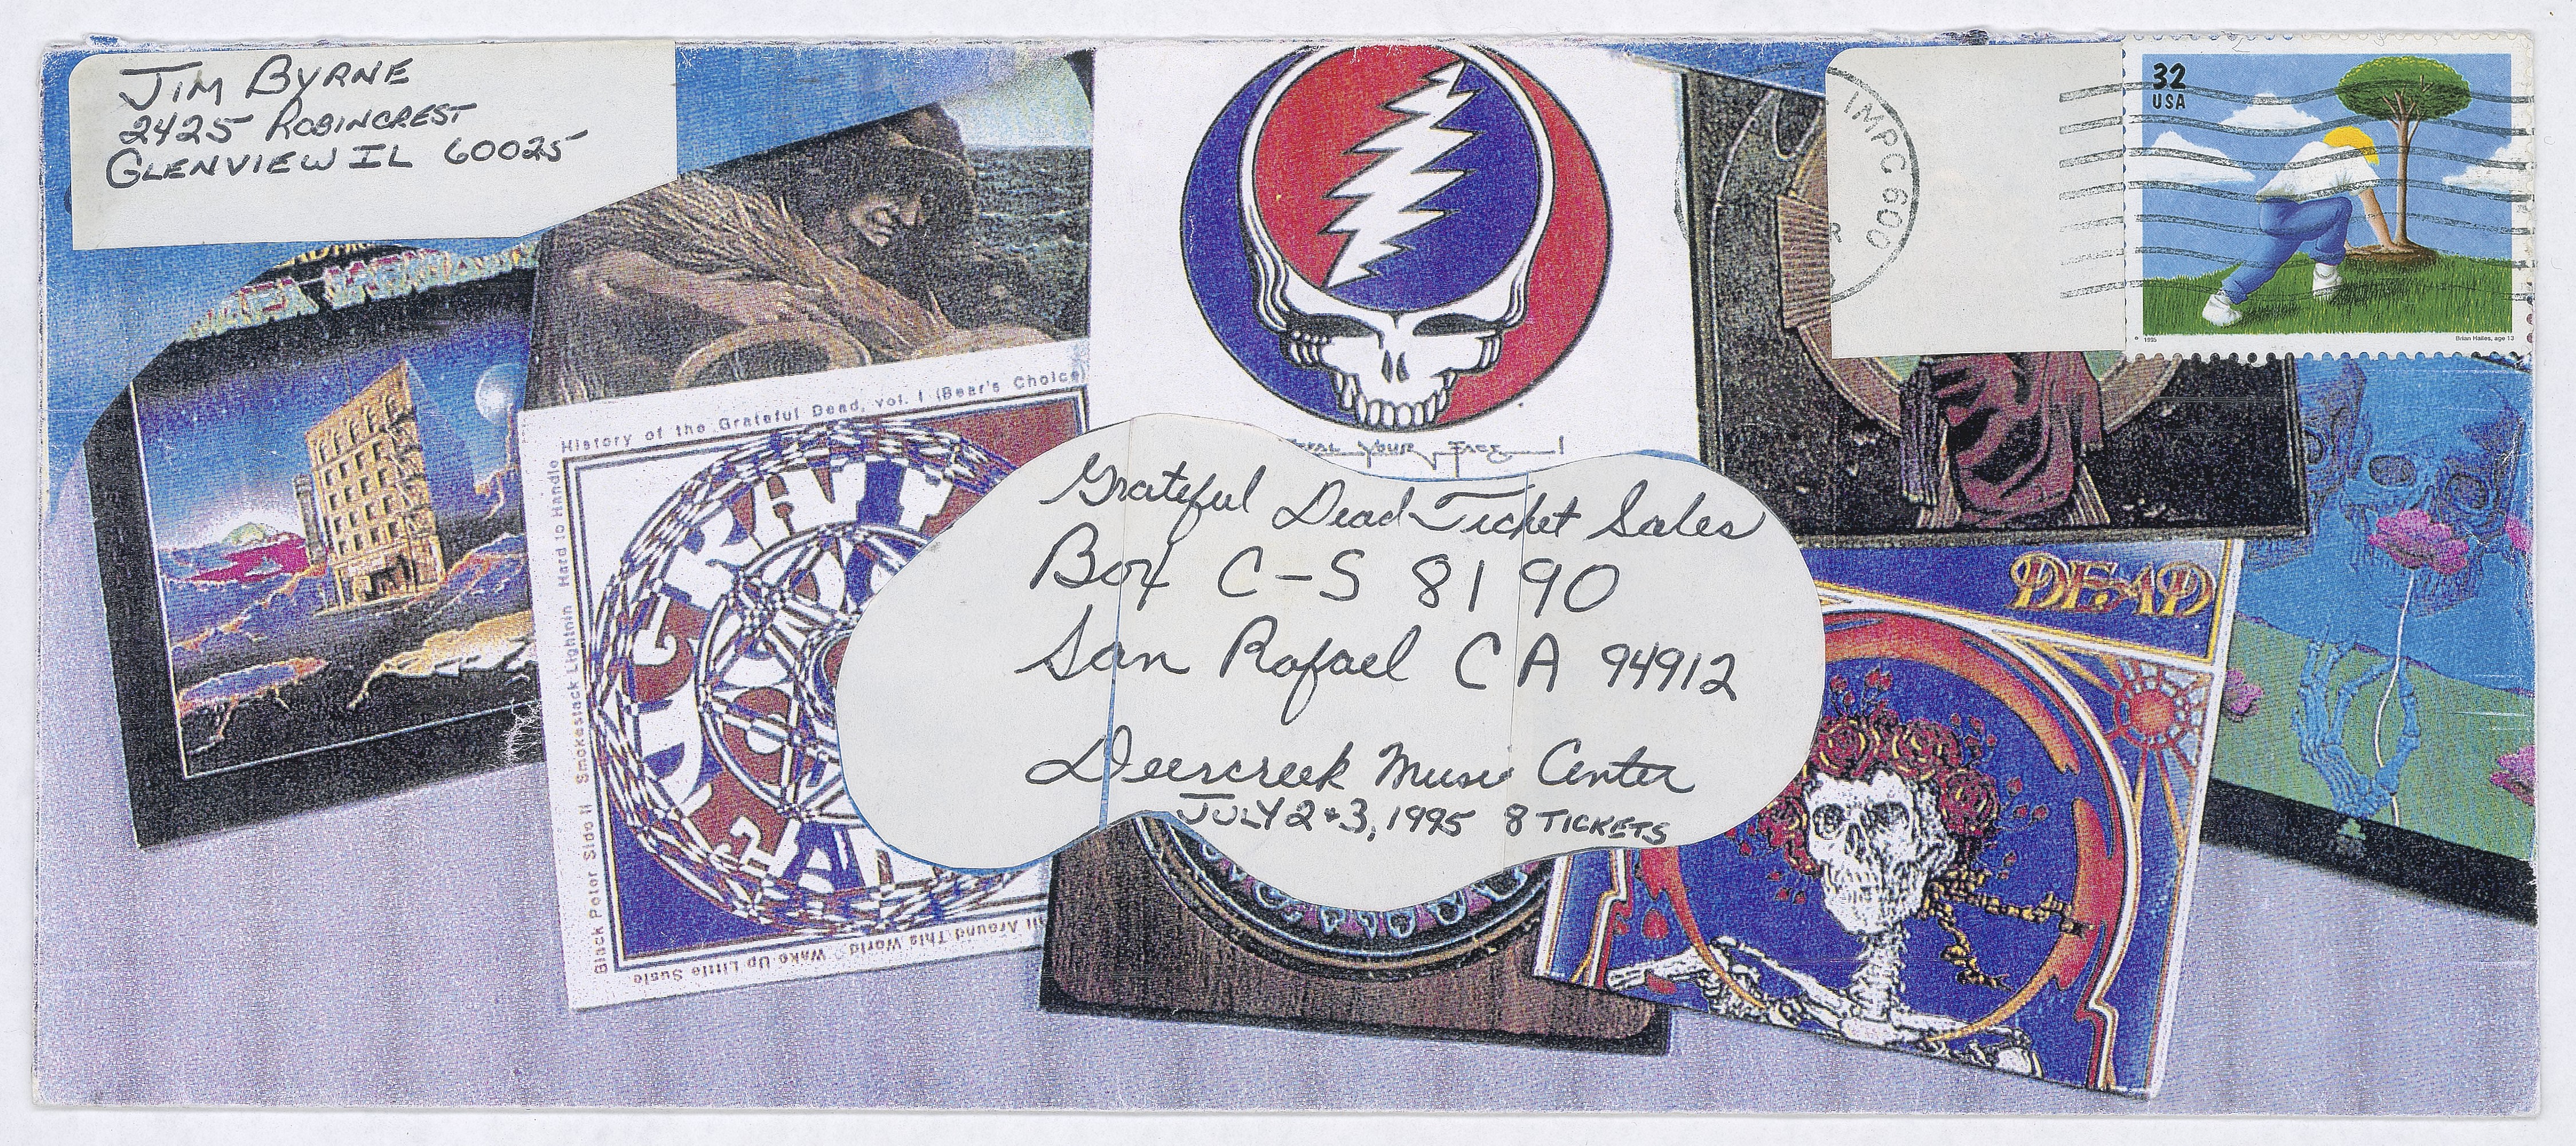 JIM BYRNE
2425 ROBINCREST
GLENVIEW IL 60025
IMPC 600
R
32
USA
1995
Brian Hailes, age 13
History of the Grateful Dead, vol. 1 (Bear's Choice)
Black Peter Side II Smokestack Lightnin Hard to Handle
Wake Up Little Susie
Around This World
YOUR FACE
DEAD
Grateful Dead Ticket Sales
Box C-S 8190
San Rafael CA 94912
Deercreek Music Center
JULY 2 & 3, 1995 8 TICKETS